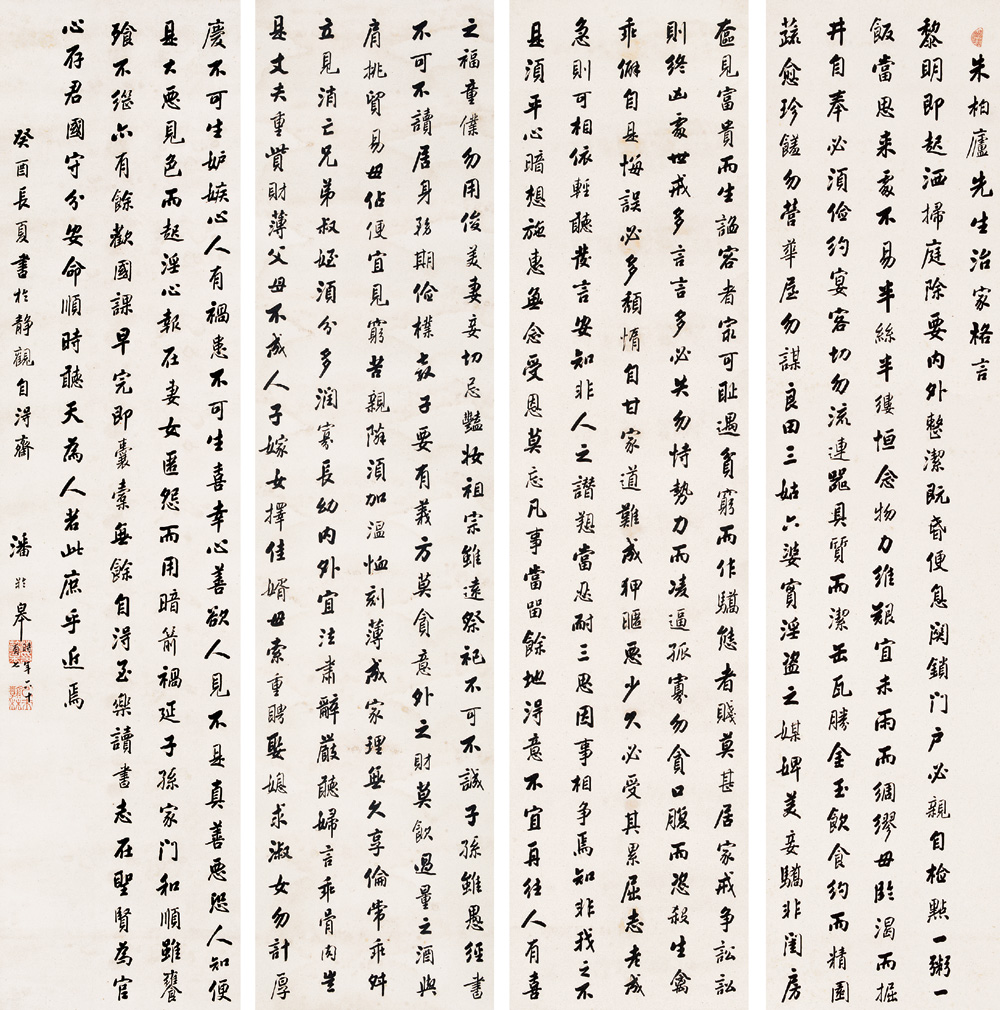 朱柏廬先生治家格言
黎明即起洒掃庭除要内外整潔既昏便息関鎖门户必親自檢點一粥一
飯當思来處不易半絲半縷恒念物力維艱宜未雨而綢繆毋臨渴而掘
井自奉必須儉約宴客切勿流連器具質而潔缶瓦勝金玉飲食約而精園
蔬愈珍饈勿營華屋勿謀良田三姑六婆實淫盜之媒婢美妾驕非閨房
奩見富貴而生諂容者㝡可耻遇貧窮而作驕態者賤莫甚居家戒争訟訟
則终凶處世戒多言言多必失勿恃勢力而凌逼孤寡勿貪口腹而恣殺生禽
乖僻自是悔誤必多頹惰自甘家道難成狎暱惡少久必受其累屈志老成
急則可相依輕聽發言安知非人之譖愬當忍耐三思因事相争焉知非我之不
是須平心暗想施惠無念受恩莫忘凡事當留餘地得意不宜再往人有喜
之福童僕勿用俊美妻妾切忌豔妝祖宗雖遠祭祀不可不誠子孫雖愚經書
不可不讀居身務期儉樸教子要有義方莫貪意外之財莫飲過量之酒與
肩挑貿易毋佔便宜見窮苦親隣須加温恤刻薄成家理無久享倫常乖舛
立見消亡兄弟叔姪須分多潤寡長幼内外宜法肅辭嚴聽婦言乖骨肉豈
是丈夫重貲財薄父母不成人子嫁女擇佳婿毋索重聘娶媳求淑女勿計厚
慶不可生妒嫉心人有禍患不可生喜幸心善欲人見不是真善惡恐人知便
是大惡見色而起淫心報在妻女匿怨而用暗箭禍延子孫家门和順雖饔
飱不继亦有餘歡國課早完即囊橐無餘自得至樂讀書志在聖賢為官
心存君國守分安命順時聽天為人若此庶乎近焉
癸酉長夏書於静觀自得齋 潘龄皋
時年六十